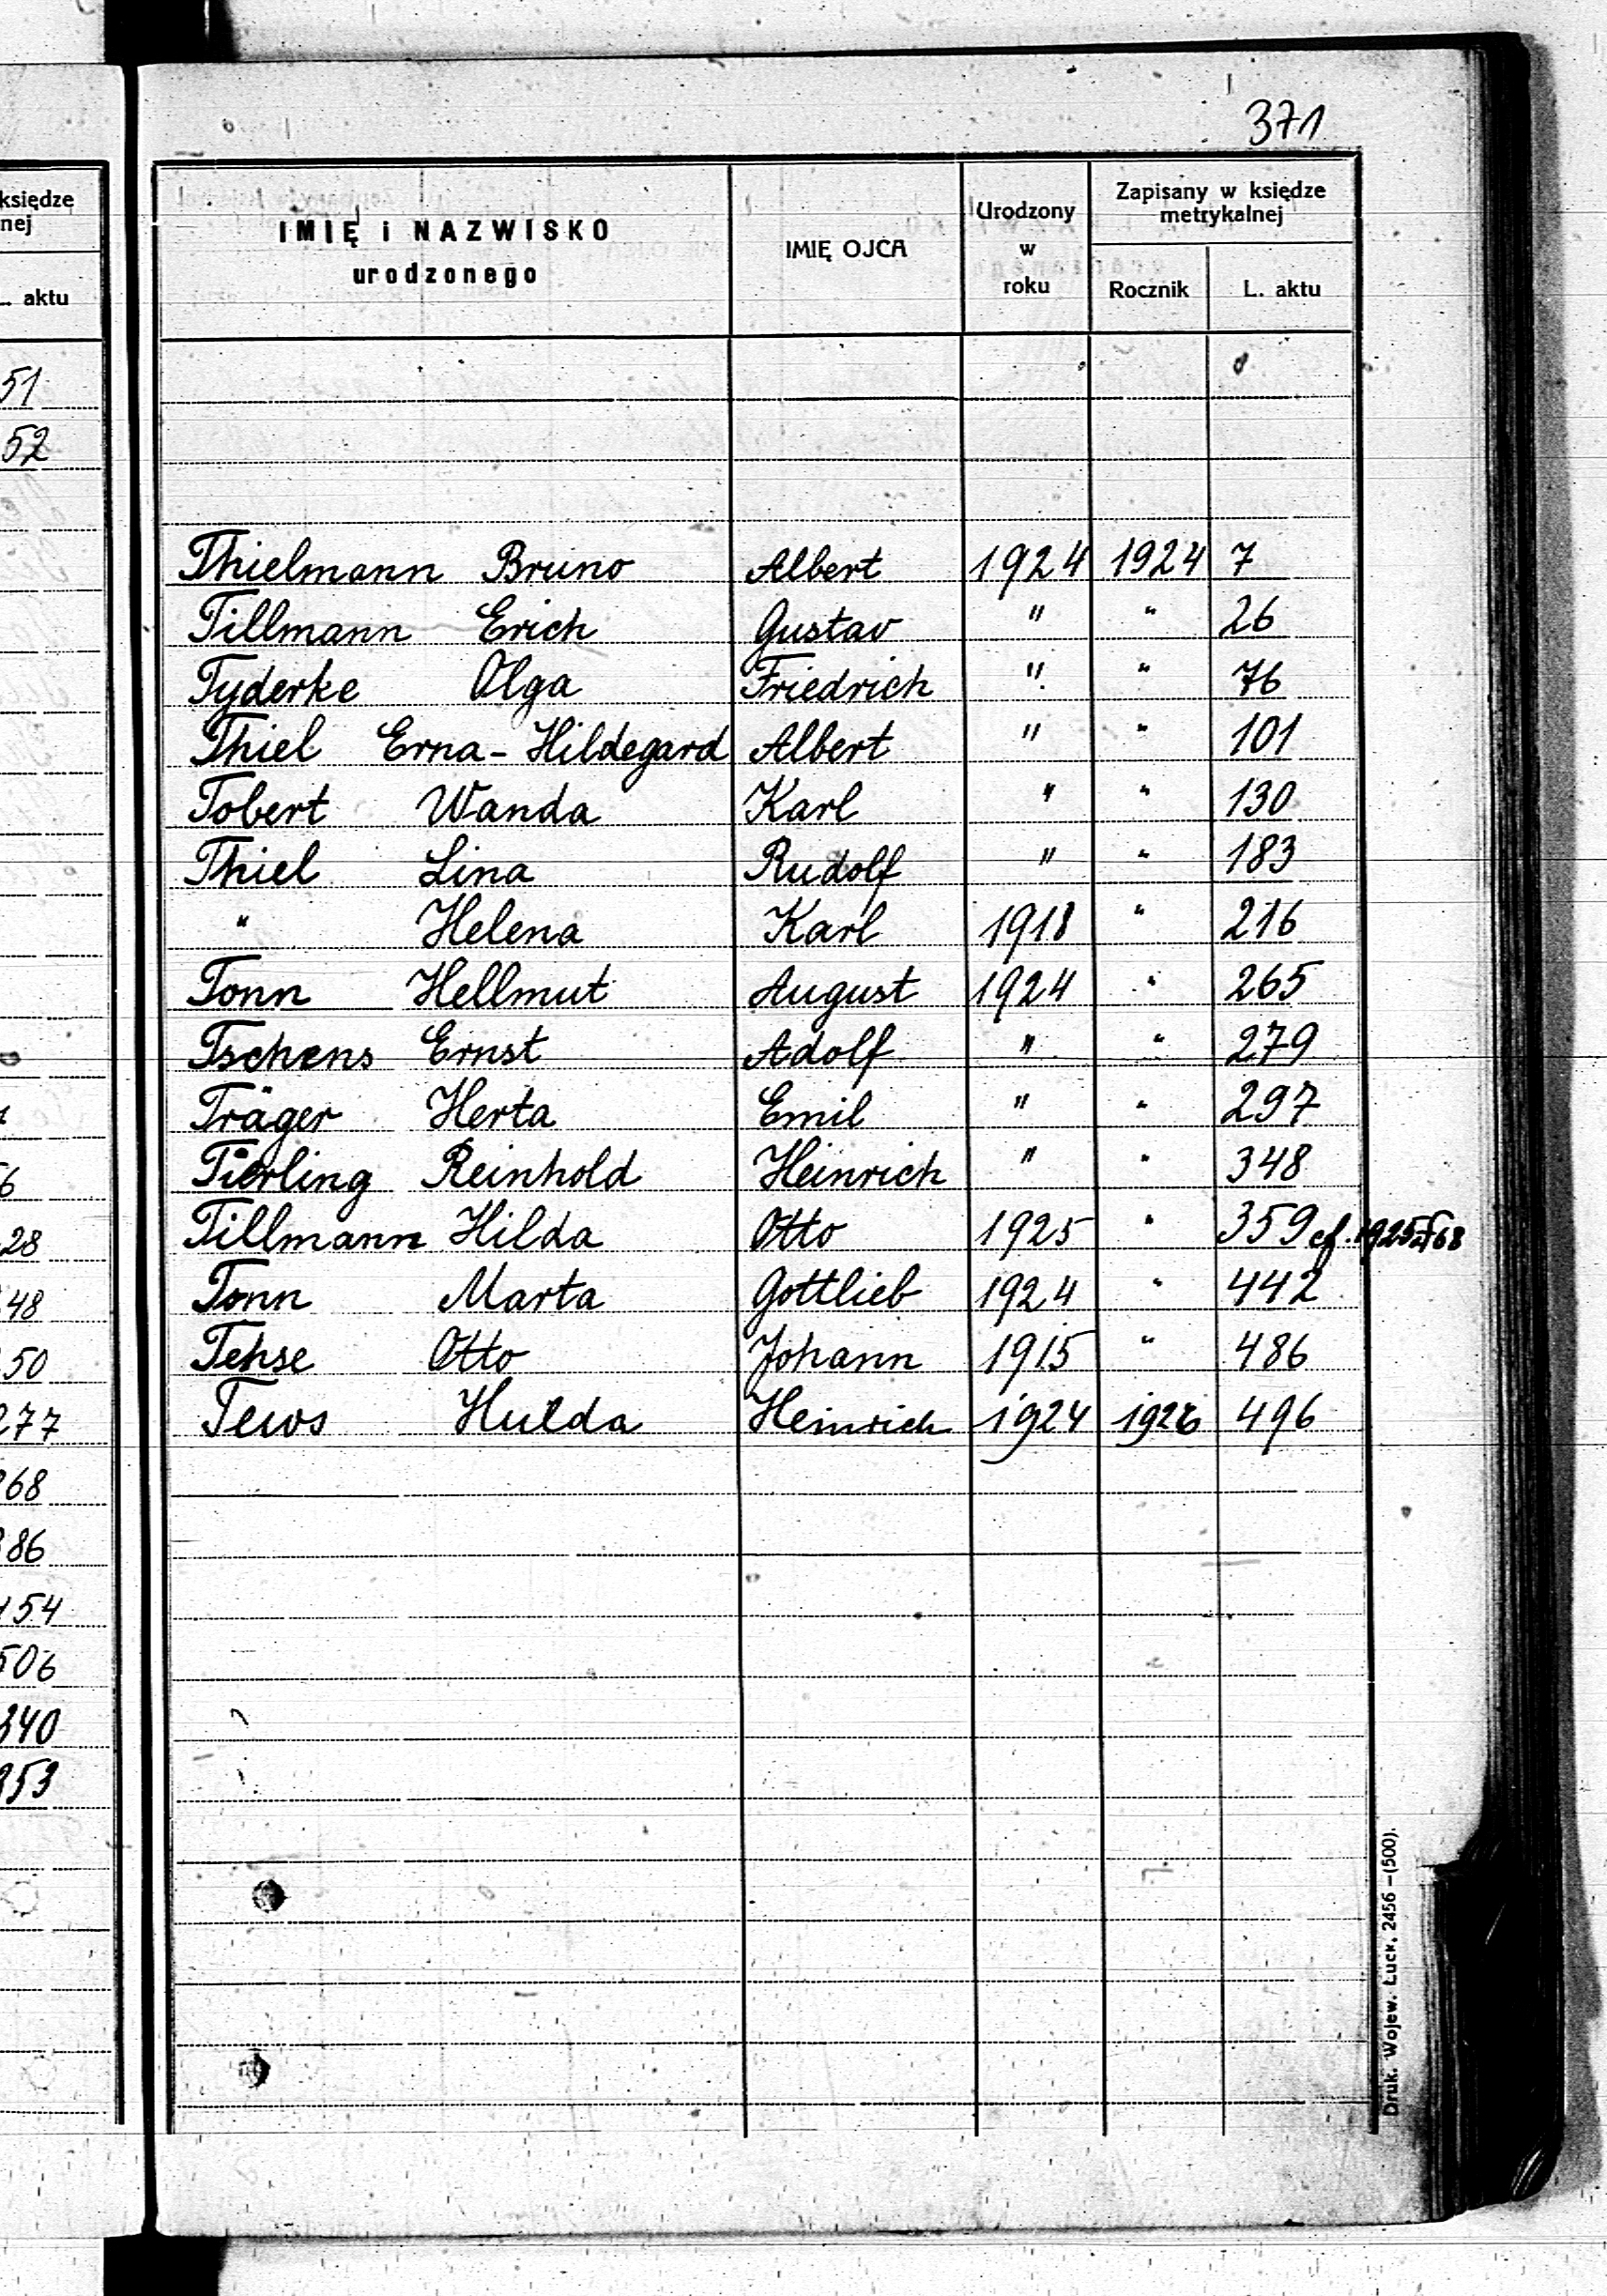 371
księdze
nej
L. aktu
51
52
6
28
48
50
277
68
86
154
506
340
353
IMIĘ i NAZWISKO
urodzonego
IMIĘ OJCA
Urodzony
w
roku
Zapisany w księdze
metrykalnej
Rocznik L. aktu
Thielmann Bruno Albert 1924 1924 7
Tillmann Erich Gustav " " 26
Tyderke Olga Friedrich " " 76
Thiel Erna-Hildegard Albert " " 101
Tobert Wanda Karl " " 130
Thiel Lina Rudolf " " 183
" Helena Karl 1918 " 216
Tonn Hellmut August 1924 " 265
Tschens Ernst Adolf " " 279
Träger Herta Emil " " 297
Tierling Reinhold Heinrich " " 348
Tillmann Hilda Otto 1925 " 359 cf. 1925 68
Tonn Marta Gottlieb 1924 " 442
Tehse Otto Johann 1915 " 486
Tews Hulda Heinrich 1924 1926 496
Druk. Wojew. Łuck, 2456 – (500).